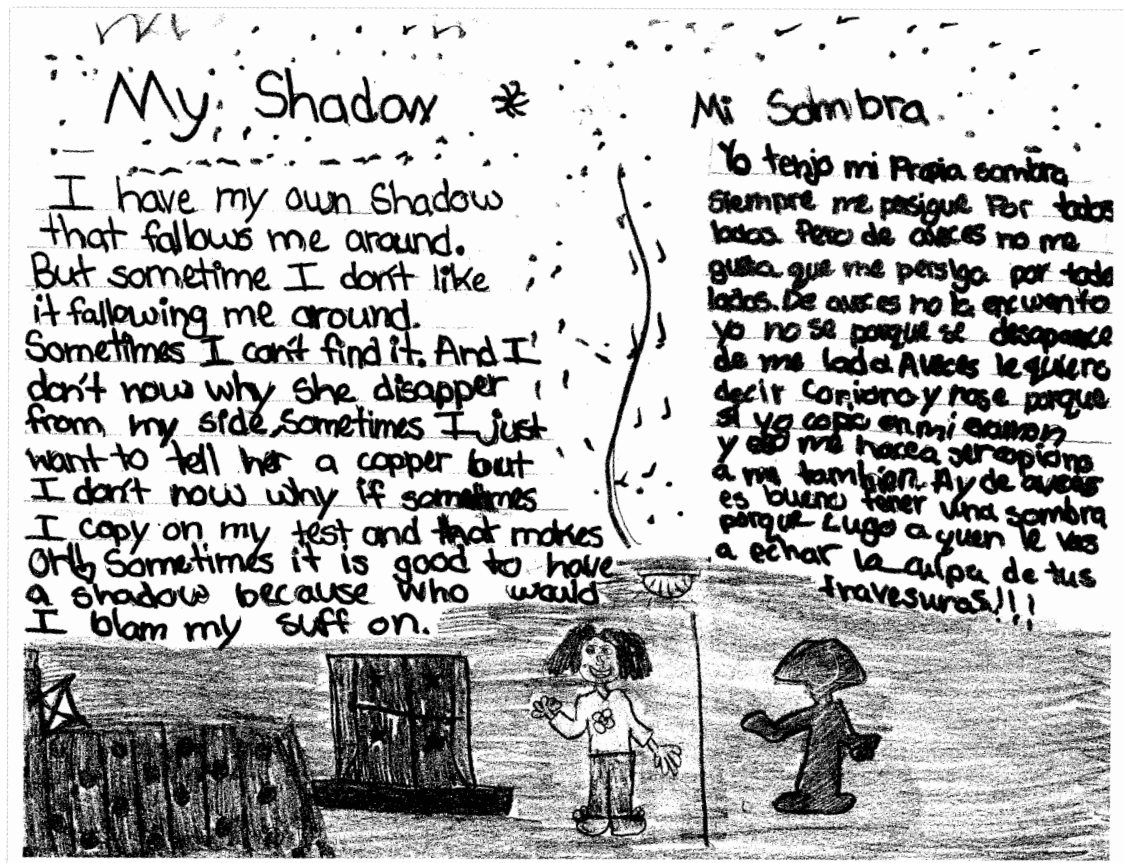 My Shadow
I have my own Shadow
that fallows me around.
But sometime I don't like
it fallowing me around.
Sometimes I can't find it. And I
don't now why she disapper
from my side, Sometimes I just
want to tell her a copper but
I don't now why if sometimes
I copy on my test and that makes
Sometimes it is good to have
a shadow because who would
I blam my suff on.
Mi Sombra
Yo tenjo mi Propia sombra
siempre me pesigue Por todos
lados. Pero de aveces no me
gusta que me persiga por todo
lados. De aveces no la encuento
yo no se porque se desaparece
de me lado. Aveces le quiero
decir Copiona y nose porque
si yo copio en mi examen
y eso me hacea ser copiona
a mi tambien. Ay de aveces
es bueno tener una sombra
porque Lugo a quen le vas
a echar la culpa de tus
travesuras!!!